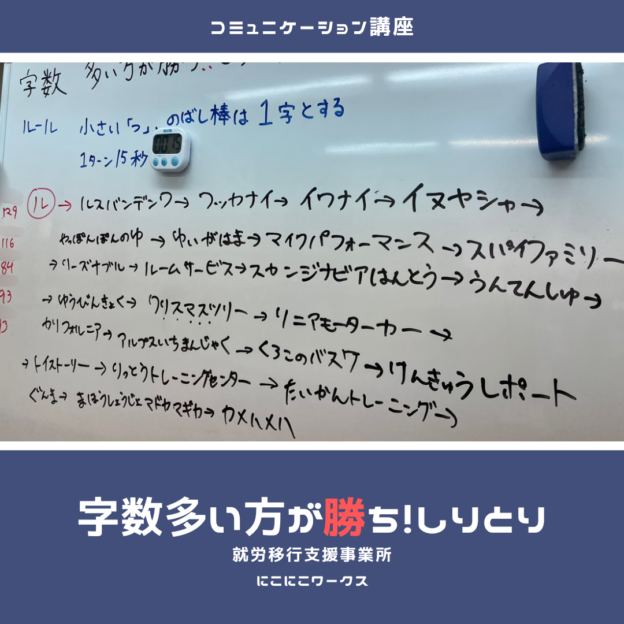 コミュニケーション講座
字数 多い方が勝ち!!
ルール 小さい「っ」、のばし棒は1字とする
1ターン15秒
129 ル→ルスバンデンワ→ワッカナイ→イワナイ→イヌヤシャ→
116 やっぽんぽんのゆ→ゆいがはま→マイクパフォーマンス→スパイファミリー
84 →リーズナブル→ルームサービス→スカンジナビアはんとう→うんてんしゅ→
93 →ゆうびんきょく→クリスマスツリー→リニアモーターカー→
カリフォルニア→アルプスいちまんじゃく→くろこのバスケ→けんきゅうレポート
→トイストーリー→りっとうトレーニングセンター→たいかんトレーニング→
ぐんま→まほうしょうじょマドカマギカ→カメハメハ
字数多い方が勝ち!しりとり
就労移行支援事業所
にこにこワークス